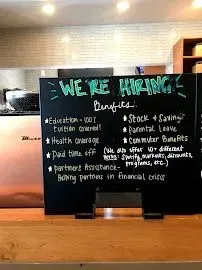 WE'RE HIRING
Benefits:
★ Education - 100%
tuition covered!
★ Health coverage
★ Paid time off
★ Partners Assistance -
Helping partners in financial crisis
★ Stock & Savings
★ Parental Leave
★ Commuter Benefits
(We also offer 10+ different
perks: Spotify, markets, discounts,
programs, etc.)